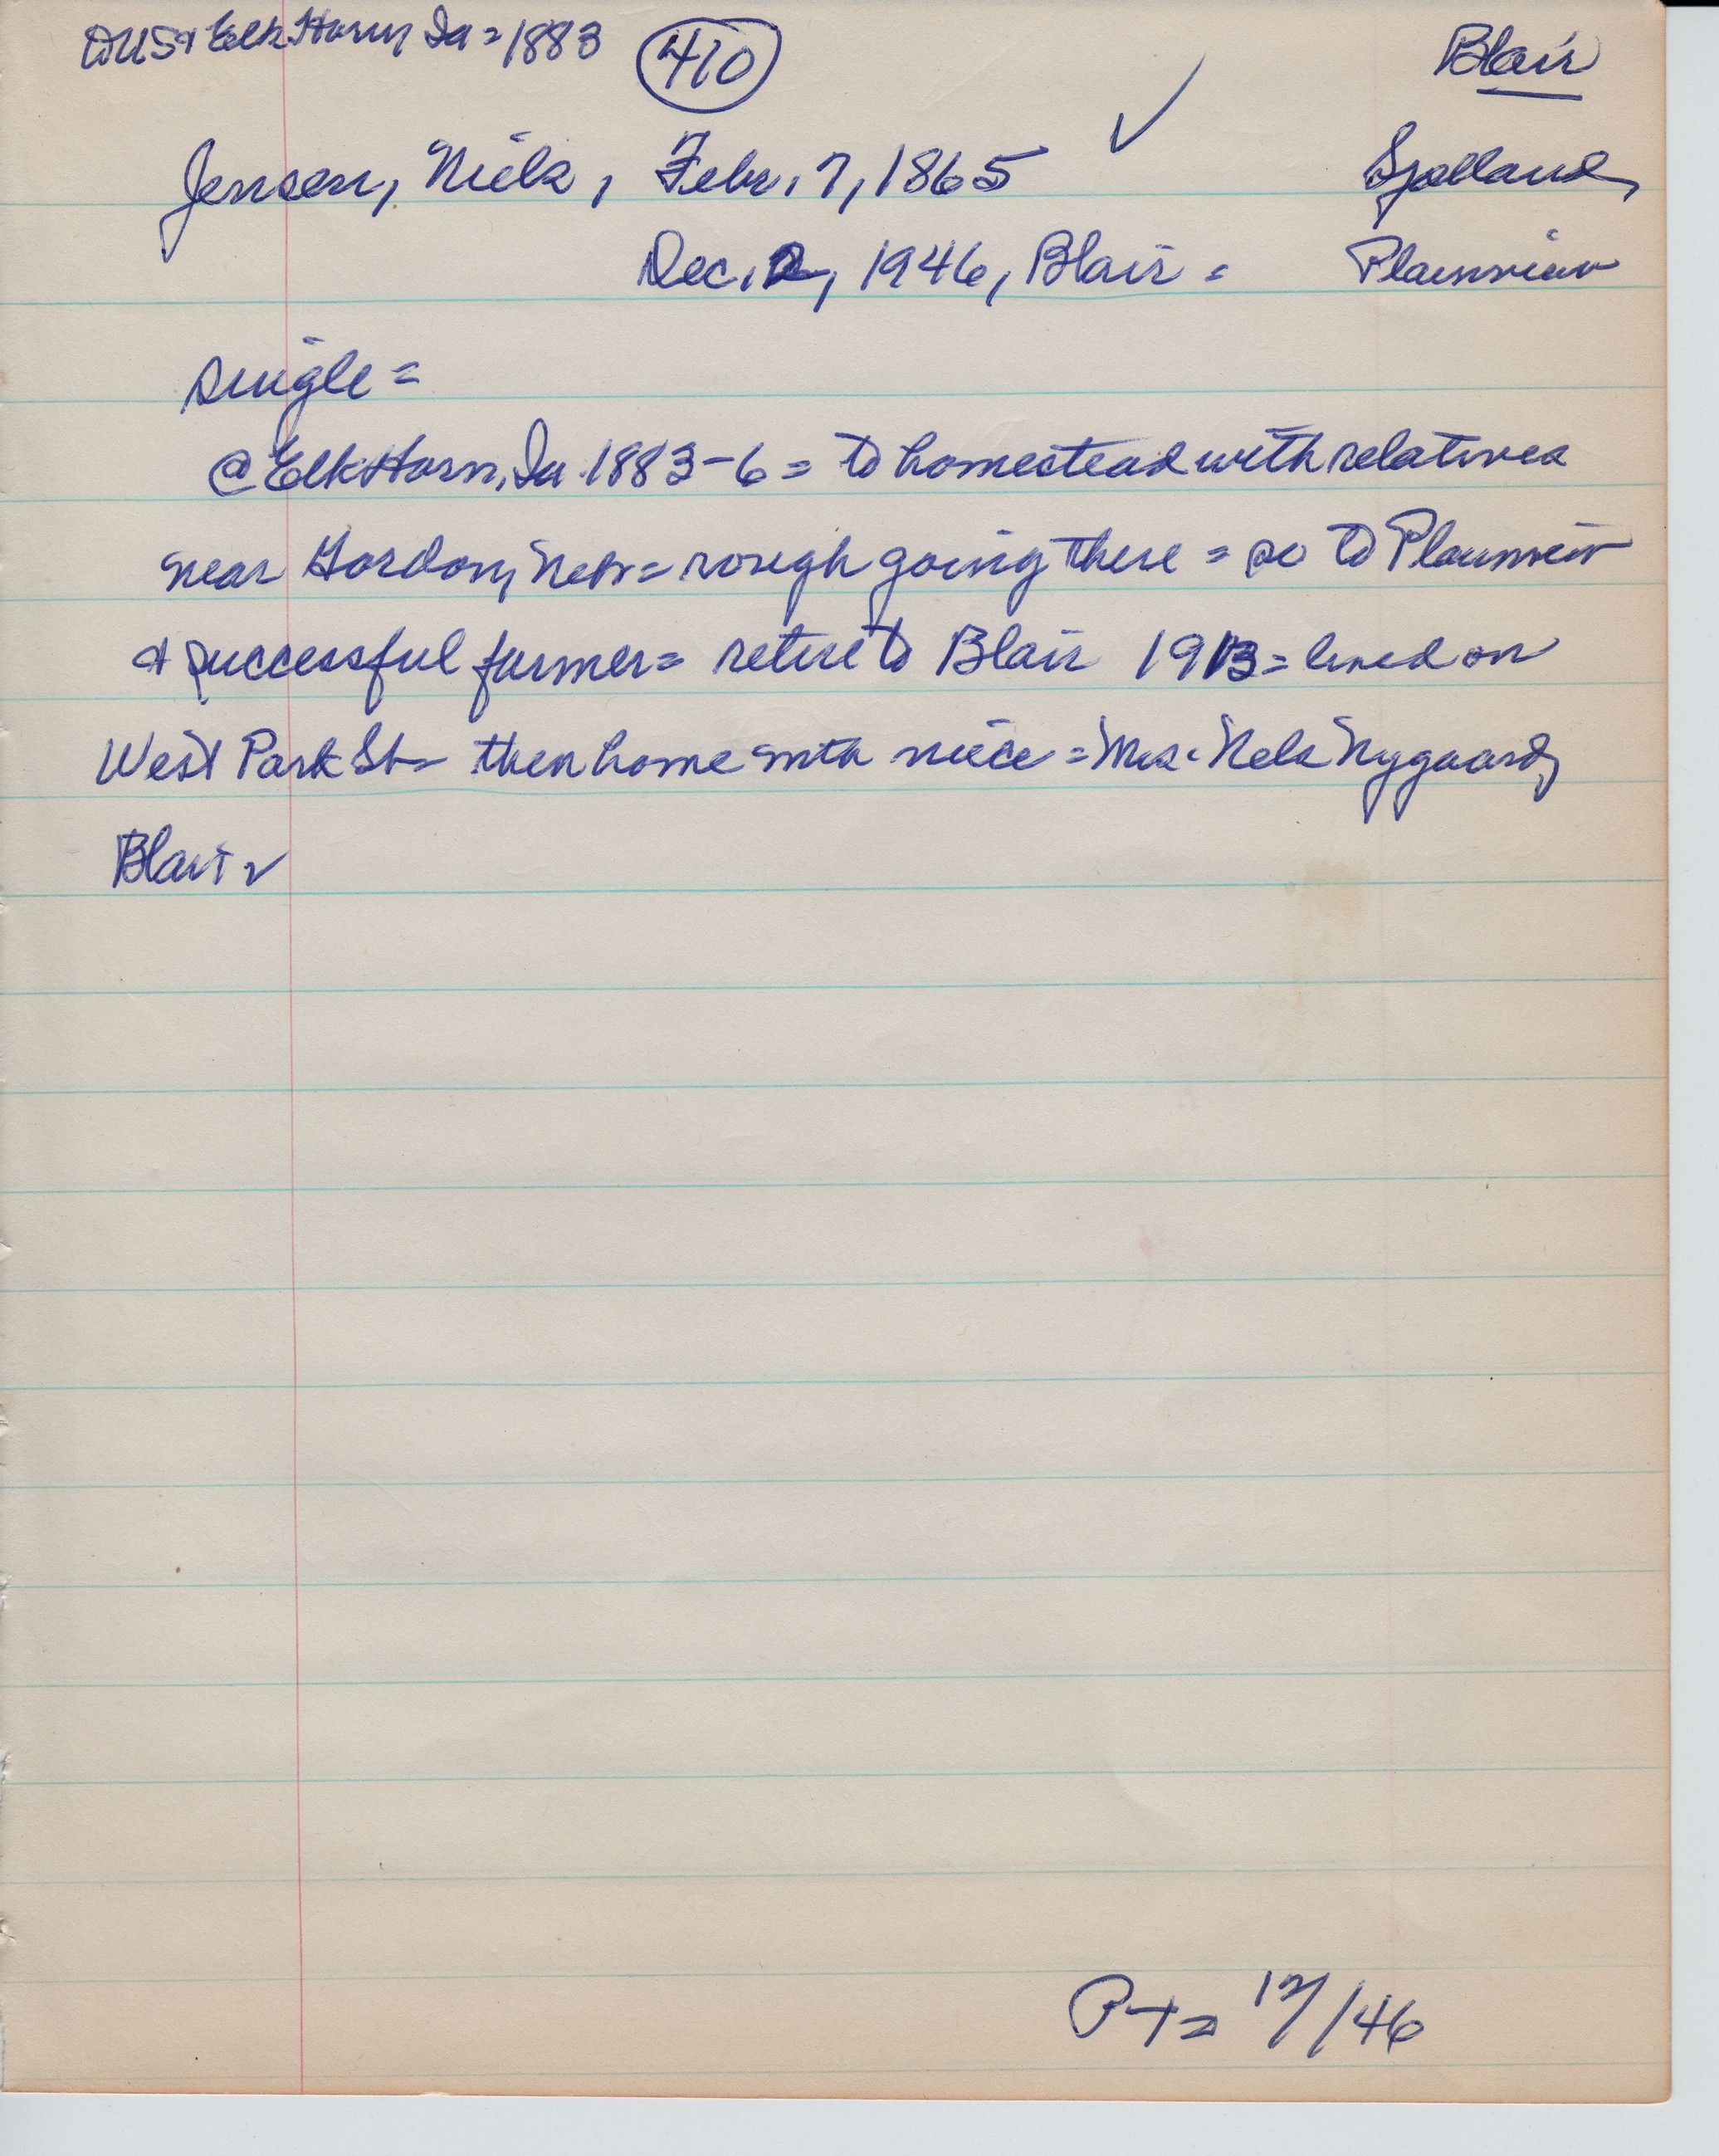 @US & Elk Horn, Ia = 1883 410 Blair
Jensen, Niels, Febr. 7, 1865 Sjælland,
Dec. 2, 1946, Blair = Plainview
single =
@ Elk Horn, Ia. 1883-6 = to homestead with relatives
near Gordon, Nebr = rough going there = so to Plainview
& successful farmer = retire to Blair 1913 = lived on
West Park St = then home with niece = Mrs. Nels Nygaard,
Blair
PT = 12/46